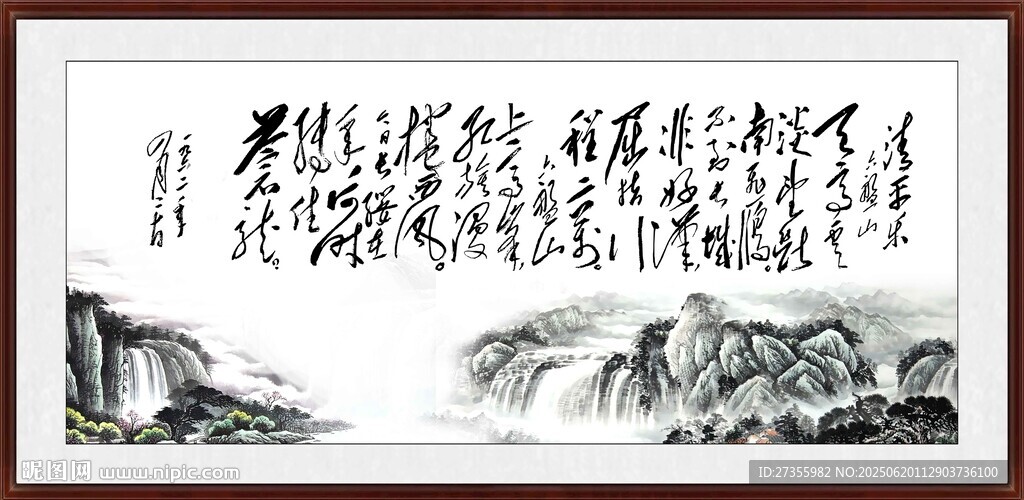 清平乐
六盤山
天高云
淡望断
南飛鴈。
不到长城
非好漢，
屈指行
程二万。
六盤山
上高峯，
红旗漫
捲西风。
今日长缨在
手，何时
缚住
苍龙。
一九六二年
四月二十日
昵图网 www.nipic.com
ID:27355982 NO:20250620112903736100